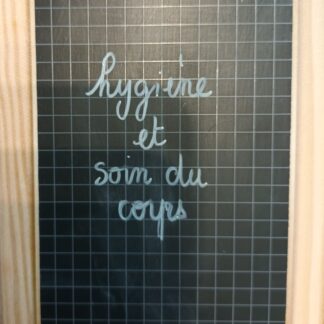 hygiène
et
soin du
corps